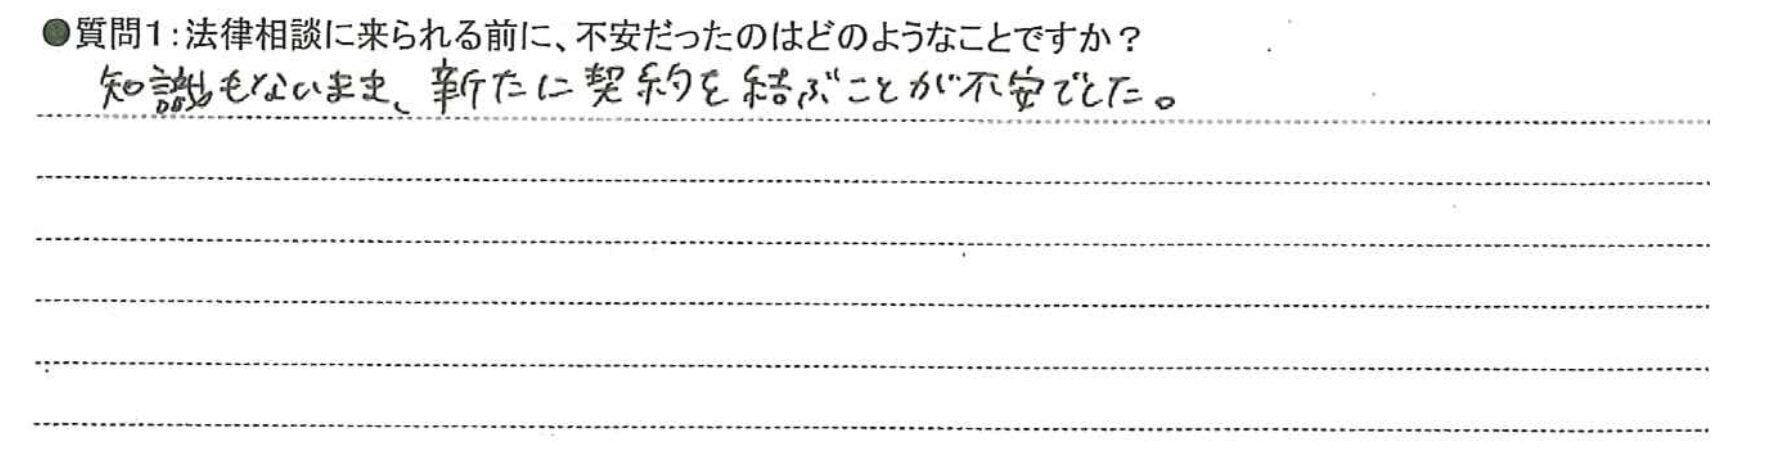 ●質問1:法律相談に来られる前に、不安だったのはどのようなことですか？
知識もないまま、新たに契約を結ぶことが不安でした。